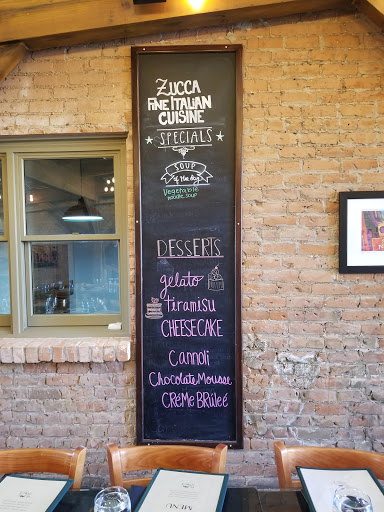 ZUCCA
FINE ITALIAN
CUISINE
SPECIALS
SOUP
of the day
Vegetable
noodle soup
DESSERTS
gelato
tiramisu
CHEESECAKE
Cannoli
Chocolate Mousse
CRéMe BRüleé
MENU